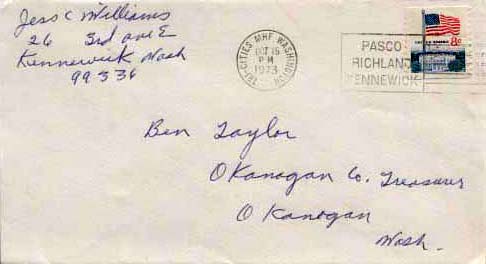 Jess C Williams
26 3rd ave E
Kennewick Wash
99336
TRI-CITIES MHF WASHINGTON
OCT 15
PM
1973
PASCO
RICHLAND
KENNEWICK
8c
Ben Taylor
Okanogan Co. Treasurer
Okanogan
Wash.